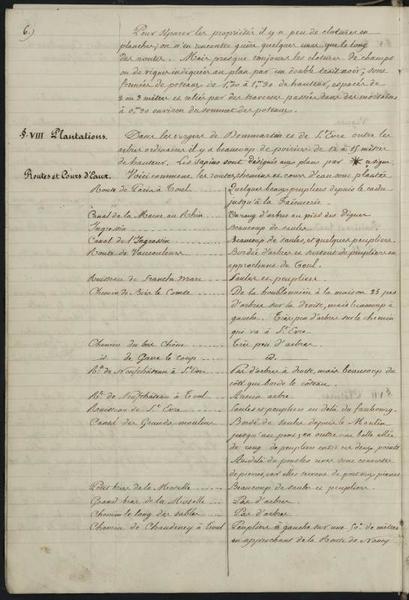 6)
Pour séparer les propriétés il y a peu de clotures en
planches; on n'en rencontre guère quelques unes que le long
des routes. Mais presque toujours les clotures de champs
ou de vignes indiquées au plan par un double trait noir, sont
formées de poteaux de 1,20 à 1,50 de hauteur, espacés de
2 ou 3 mètres et reliés par des traverses passées dans des mortaises
à 0,20 environ du sommet des poteaux.
§. VIII Plantations. Dans les vergers de Dommartin et de St Evre outre les
arbres ordinaires il y a beaucoup de poiriers de 12 à 15 mètres
de hauteur. Les sapins sont désignés au plan par signe
Routes et Cours d'Eaux. Voici comment les routes, chemins et cours d'eau sont plantés
Route de Paris à Toul Quelques beaux peupliers depuis le
jusqu'à la Faïencerie.
Canal de la Marne au Rhin Un rang d'arbres au pied des digues
Ingressin Beaucoup de saules.
Canal de l'Ingressin Beaucoup de saules, et quelques peupliers.
Route de Vaucouleurs Bordée d'arbres et surtout de peupliers en
approchant de Toul.
Ruisseau de Saules et peupliers
Chemin de Bois le Comte De la houblonnière à la maison 23 pas
d'arbres sur la droite, mais beaucoup à
gauche. Très peu d'arbres sur le chemin
qui va à St Evre
Chemin du bois Chêne Très peu d'arbres
id. de Gare le Coup id.
Rte de Neufchâteau à St Evre Pas d'arbres à droite, mais beaucoup du
côté qui borde le côteau.
Rte de Neufchâteau à Toul Aucun arbre
Ruisseau de St Evre Saules et peupliers en delà du faubourg.
Canal des Grands moulins Bordé de saules depuis le Moulin
jusqu'au pont; en outre une belle allée
de rang de peupliers entre ces deux points
Au delà du pont les rives sont
de pierres,
Petit bras de la Moselle Beaucoup de saules et peupliers
Grand bras de la Moselle Pas d'arbres
Chemin le long des sables Pas d'arbres
Chemin de Chaudeney à Toul Peupliers à gauche sur une 50e de mètres
en approchant de la Route de Nancy